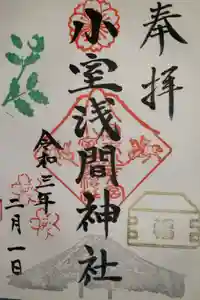 奉拝
小室浅間神社
令和三年
二月一日
福